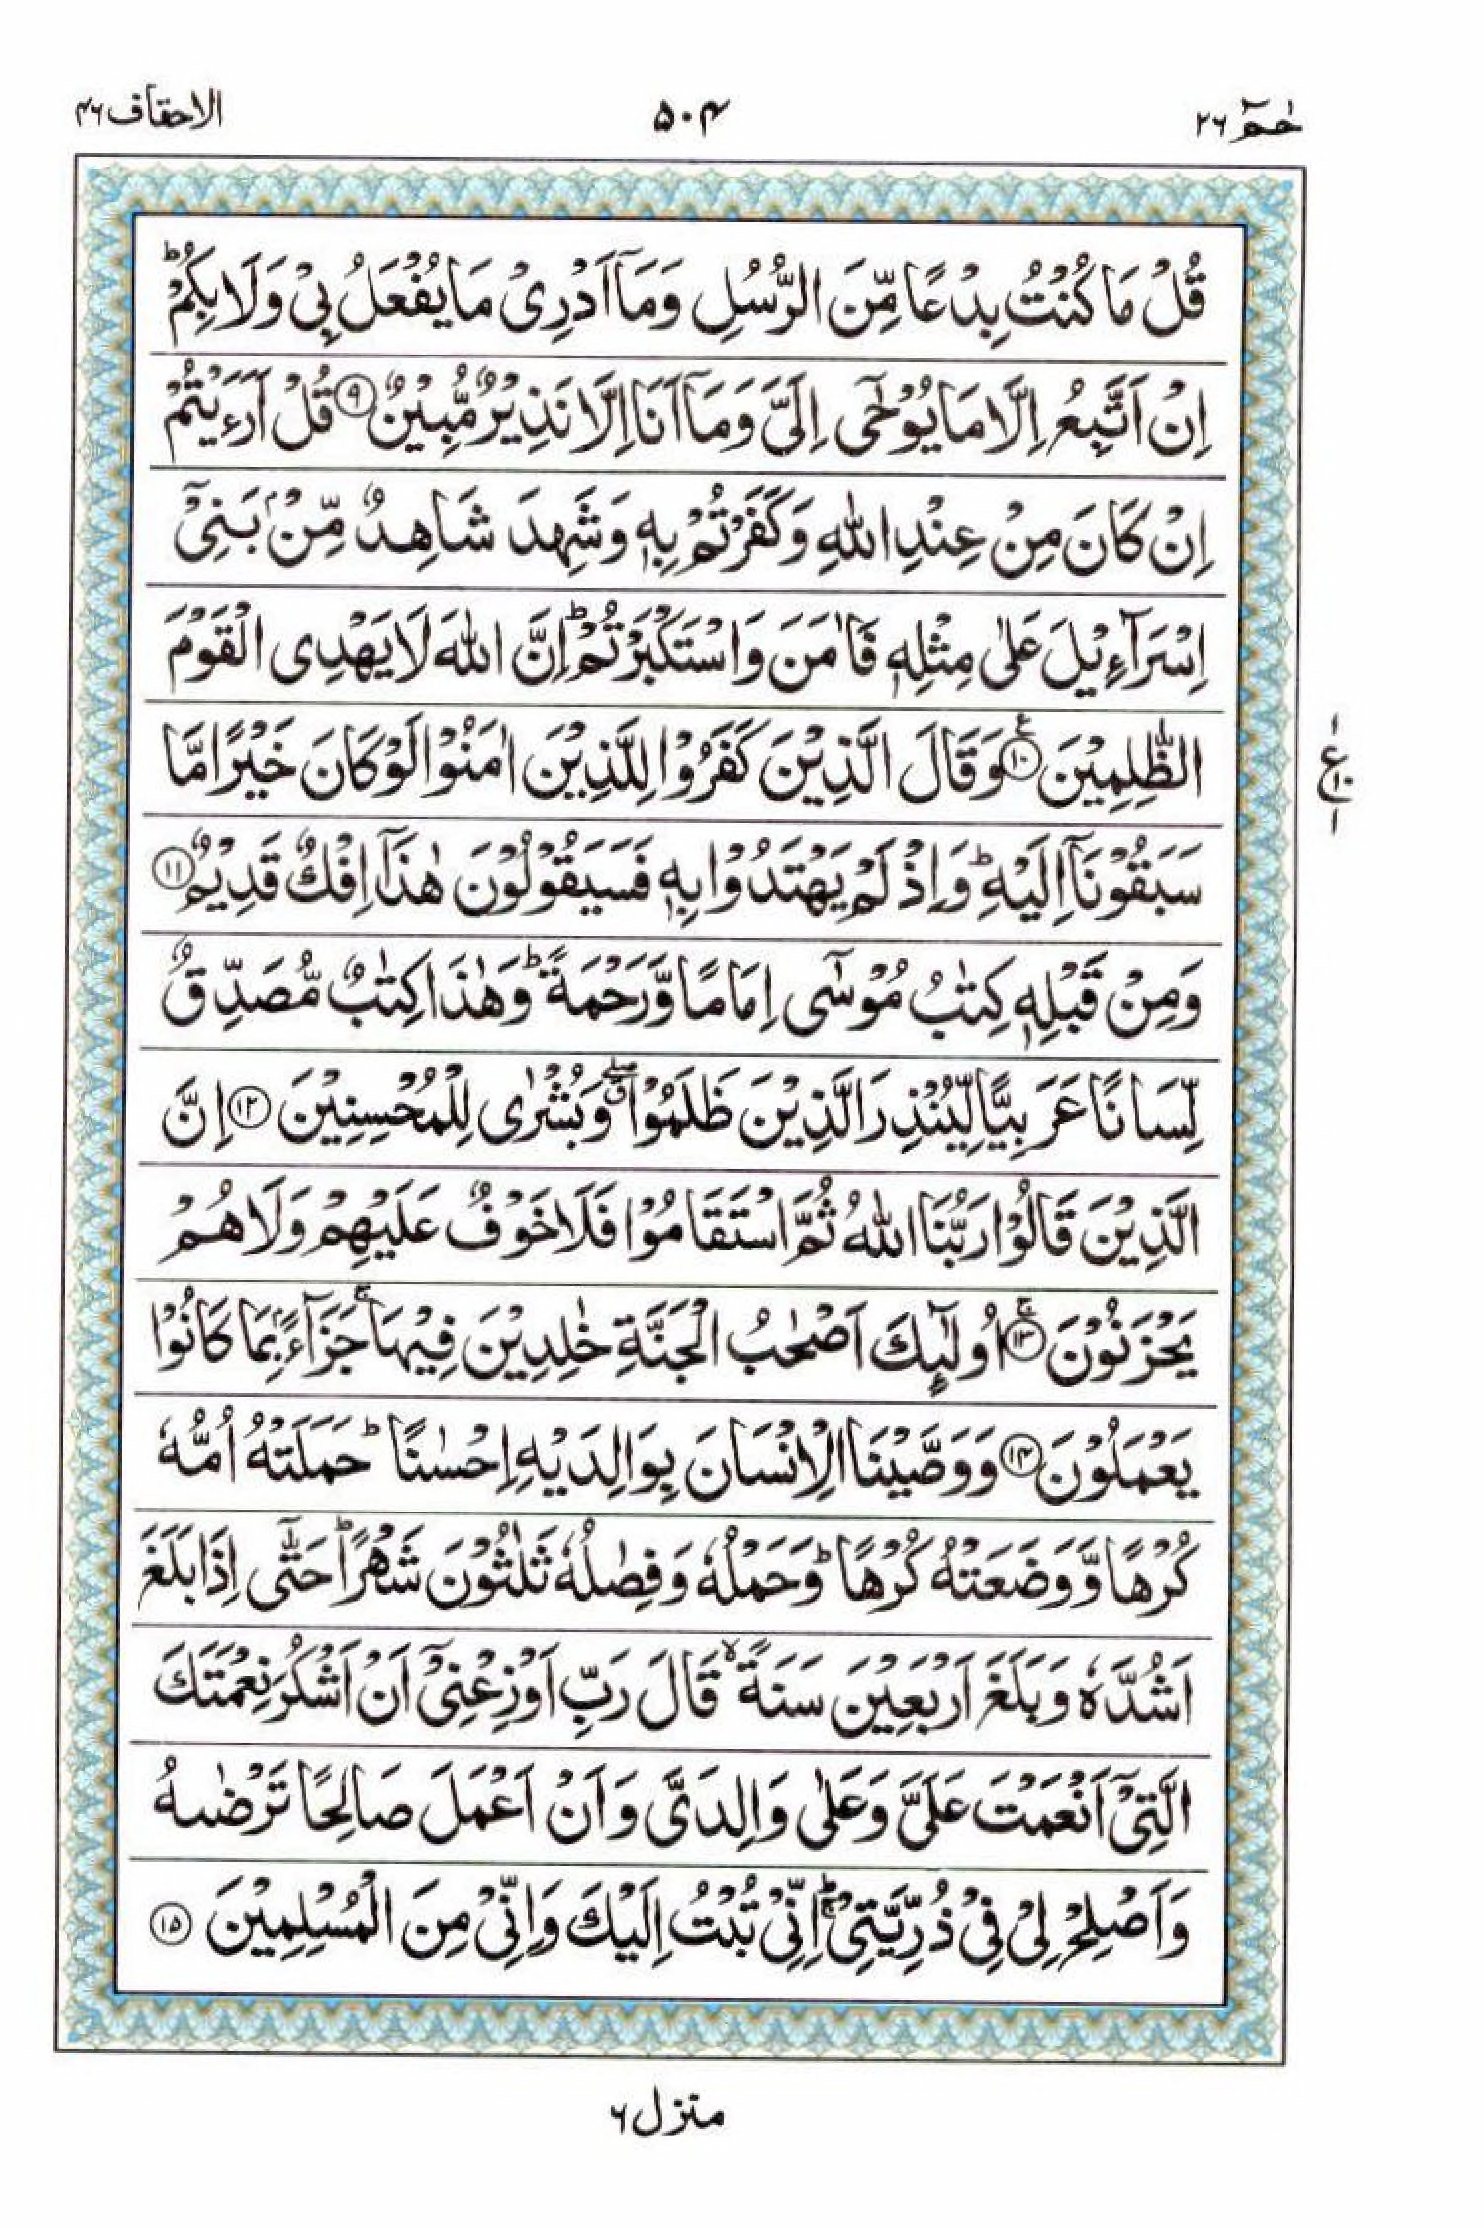 حٰمٓ ٢٦
٥٠٤
الاحقاف ٤٦
قُلْ مَا كُنْتُ بِدْعًا مِّنَ الرُّسُلِ وَمَآ اَدْرِىْ مَا يُفْعَلُ بِىْ وَلَا بِكُمْ ؕ
اِنْ اَتَّبِعُ اِلَّا مَا يُوْحٰٓى اِلَىَّ وَمَآ اَنَا اِلَّا نَذِيْرٌ مُّبِيْنٌ ۹ قُلْ اَرَءَيْتُمْ
اِنْ كَانَ مِنْ عِنْدِ اللّٰهِ وَكَفَرْتُمْ بِهٖ وَشَهِدَ شَاهِدٌ مِّنْۢ بَنِىْٓ
اِسْرَآءِيْلَ عَلٰى مِثْلِهٖ فَاٰمَنَ وَاسْتَكْبَرْتُمْ ؕ اِنَّ اللّٰهَ لَا يَهْدِى الْقَوْمَ
الظّٰلِمِيْنَ ۱۰ وَقَالَ الَّذِيْنَ كَفَرُوْا لِلَّذِيْنَ اٰمَنُوْا لَوْ كَانَ خَيْرًا مَّا
ع ١٠
سَبَقُوْنَآ اِلَيْهِ ؕ وَاِذْ لَمْ يَهْتَدُوْا بِهٖ فَسَيَقُوْلُوْنَ هٰذَآ اِفْكٌ قَدِيْمٌ ۱۱
وَمِنْ قَبْلِهٖ كِتٰبُ مُوْسٰٓى اِمَامًا وَّرَحْمَةً ؕ وَهٰذَا كِتٰبٌ مُّصَدِّقٌ
لِّسَانًا عَرَبِيًّا لِّيُنْذِرَ الَّذِيْنَ ظَلَمُوْا ۖ وَبُشْرٰى لِلْمُحْسِنِيْنَ ۱۲ اِنَّ
الَّذِيْنَ قَالُوْا رَبُّنَا اللّٰهُ ثُمَّ اسْتَقَامُوْا فَلَا خَوْفٌ عَلَيْهِمْ وَلَا هُمْ
يَحْزَنُوْنَ ۱۳ اُولٰٓئِكَ اَصْحٰبُ الْجَنَّةِ خٰلِدِيْنَ فِيْهَا ۚ جَزَآءًۢ بِمَا كَانُوْا
يَعْمَلُوْنَ ۱۴ وَوَصَّيْنَا الْاِنْسَانَ بِوَالِدَيْهِ اِحْسٰنًا ؕ حَمَلَتْهُ اُمُّهٗ
كُرْهًا وَّوَضَعَتْهُ كُرْهًا ؕ وَحَمْلُهٗ وَفِصٰلُهٗ ثَلٰثُوْنَ شَهْرًا ؕ حَتّٰٓى اِذَا بَلَغَ
اَشُدَّهٗ وَبَلَغَ اَرْبَعِيْنَ سَنَةً ۙ قَالَ رَبِّ اَوْزِعْنِىْٓ اَنْ اَشْكُرَ نِعْمَتَكَ
الَّتِىْٓ اَنْعَمْتَ عَلَىَّ وَعَلٰى وَالِدَىَّ وَاَنْ اَعْمَلَ صَالِحًا تَرْضٰىهُ
وَاَصْلِحْ لِىْ فِىْ ذُرِّيَّتِىْ ؕۚ اِنِّىْ تُبْتُ اِلَيْكَ وَاِنِّىْ مِنَ الْمُسْلِمِيْنَ ۱۵
منزل ٦